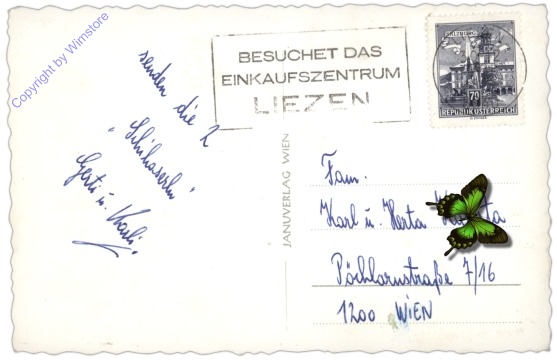 Copyright by Wimstore
senden die 2
"Schihaserln"
Gerti u. Karli.
BESUCHET DAS
EINKAUFSZENTRUM
LIEZEN
70
REPUBLIK ÖSTERREICH
JANUVERLAG WIEN
Fam.
Karl u. Herta
Pöchlarnstraße 7/16
1200 WIEN